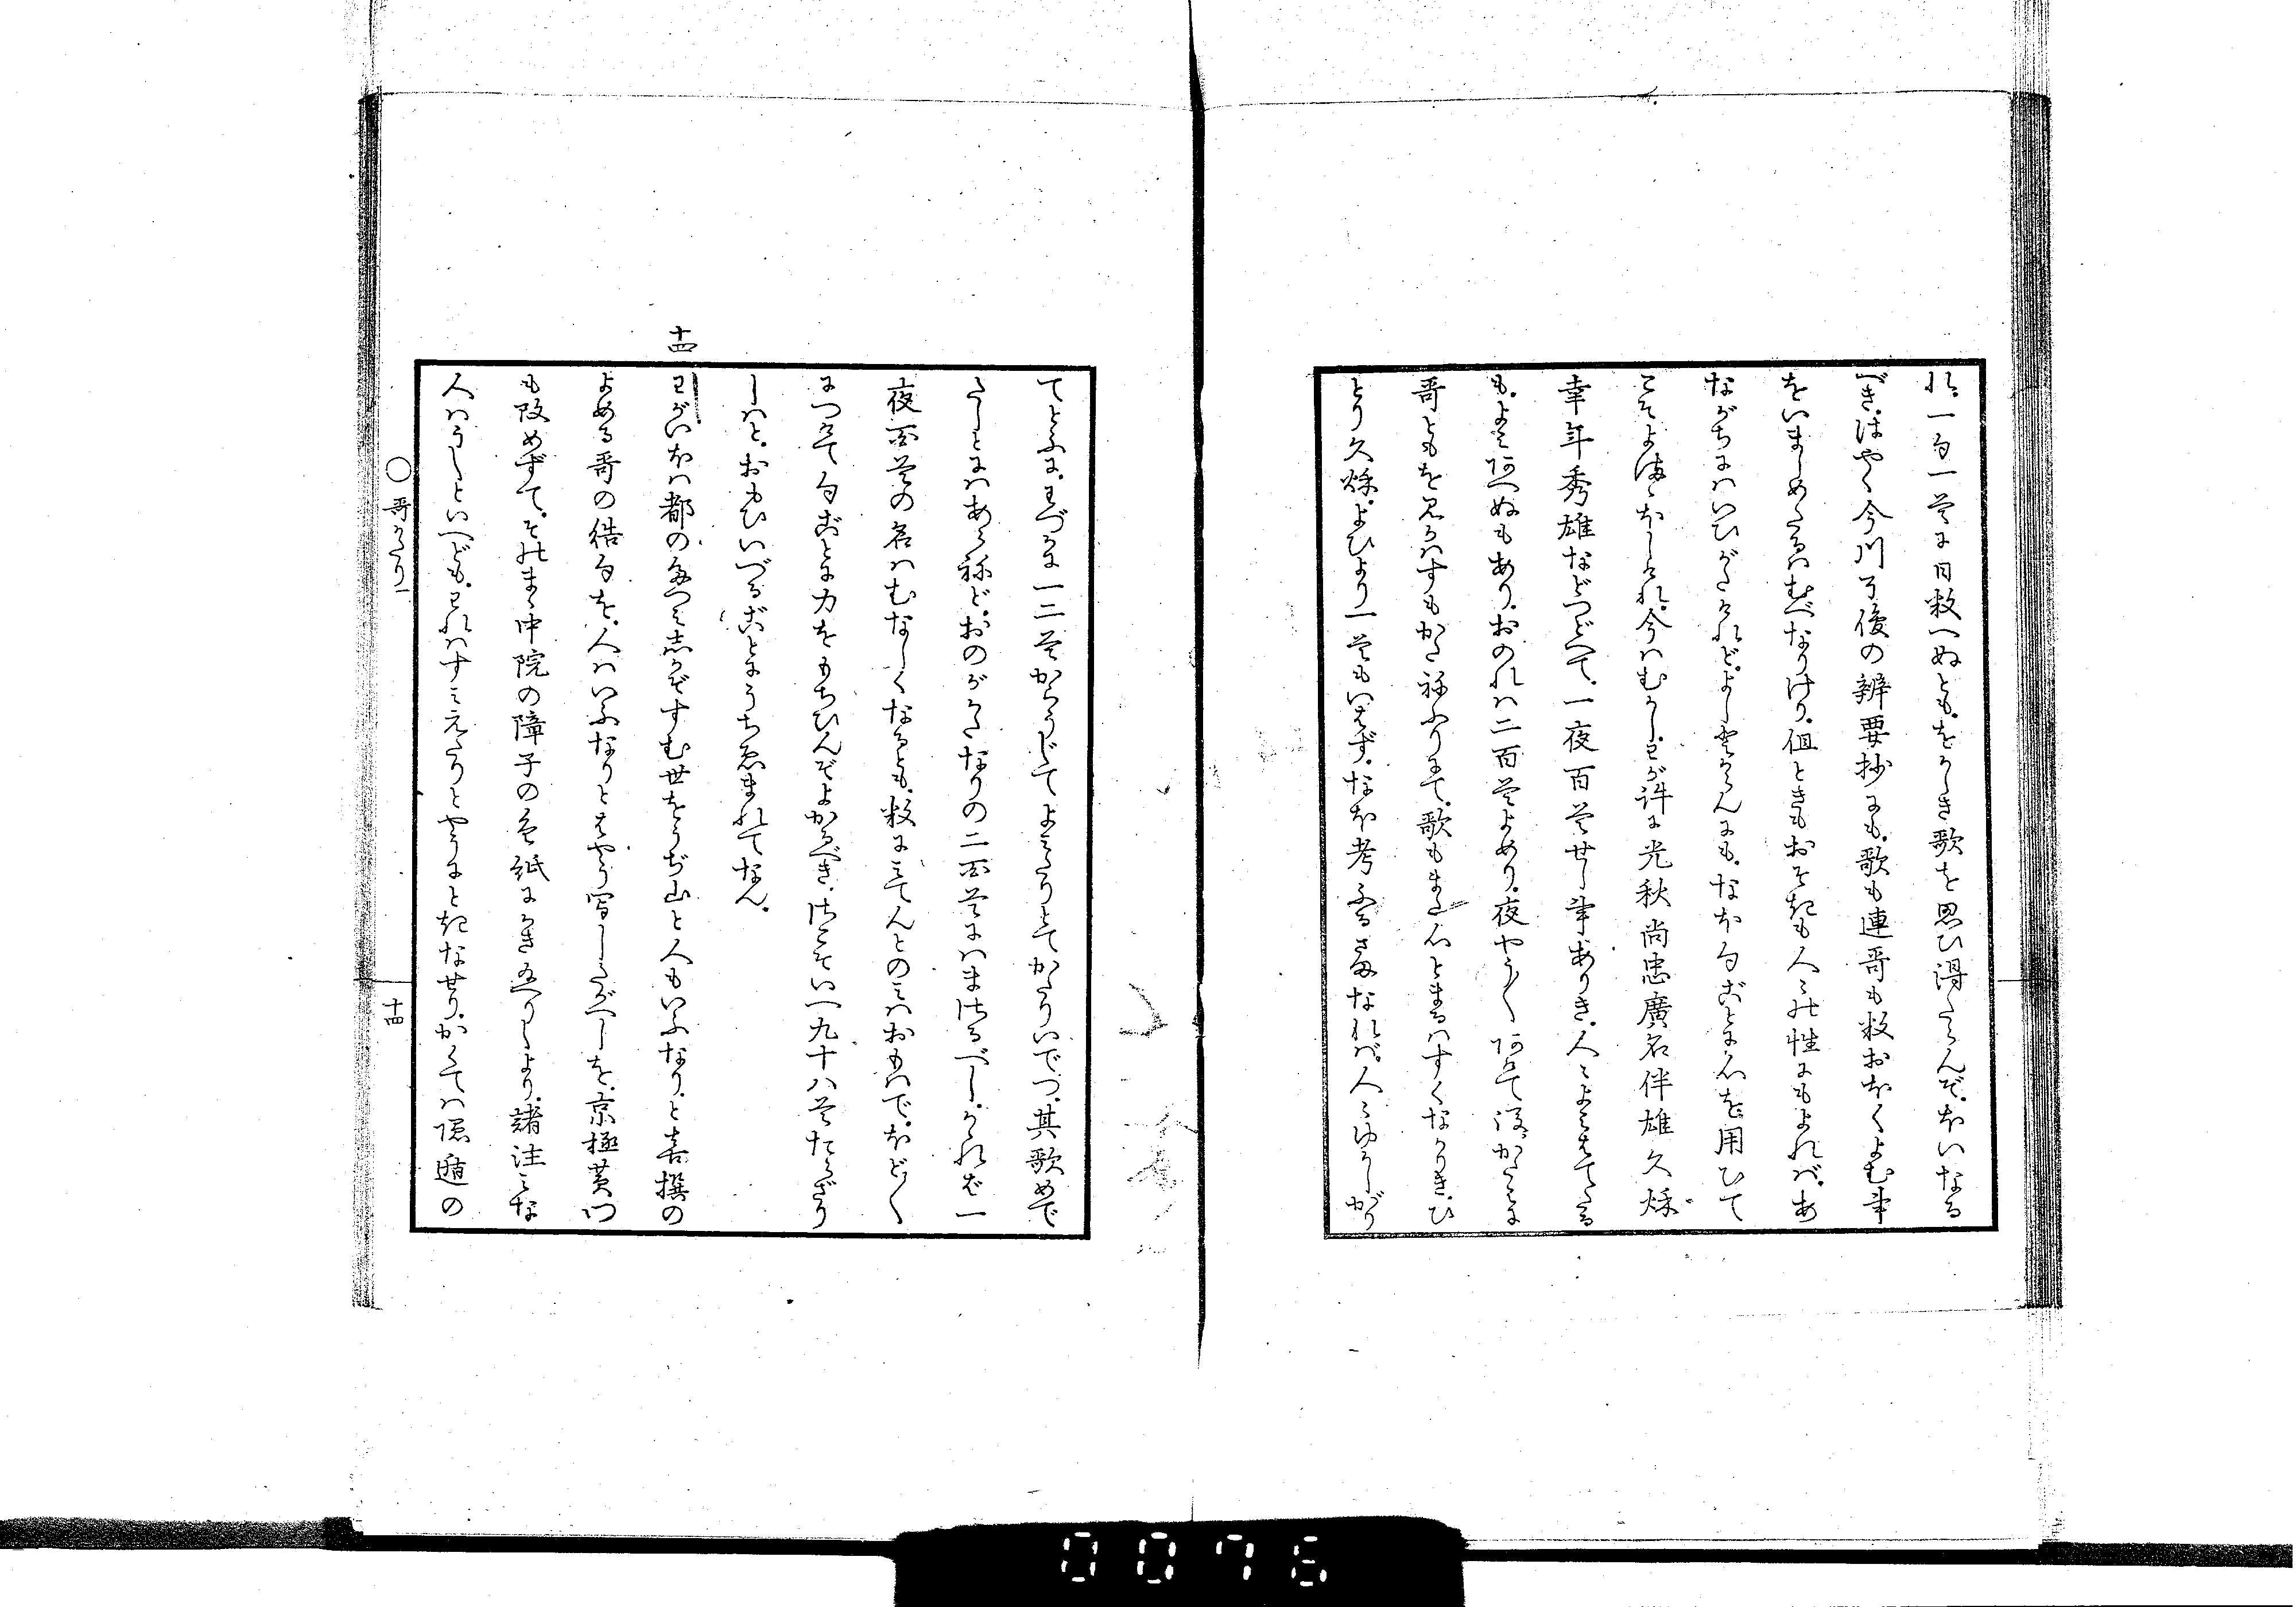 れ。一句一首に日数へぬとも。をかしき歌を思ひ得たらんぞ。ほいなる
べき。はやく今川了俊の辨要抄にも。歌も連哥も数おほくよむ事
をいましめたるはむべなりけり。但ときもおそきも人々の性にもよれば。あ
ながちにはいひがたけれど。よしとからんにも。なほ句ごとに心を用ひて
こそよまゝほしけれ。今はむかし。己が許に光秋尚忠廣名伴雄久穌。
幸年秀雄などつどへて。一夜百首せし事ありき。人々よみはてたる
も。よみ得へぬもあり。おのれは二百首よめり。夜やう〳〵
哥ともを見るはすもかたねふりにて。歌もまた心とまるはすくなかりき。ひ
とり久穌。よひより一首もいはず。なほ考ふるさまなれば。人々ゆかしがり
てとふに。わづかに一二首からうじてよみたりとてかたりいでつ。其歌めで
たしとにはあらねど。おのがかたなりの二百首にはまさるべし。かゝれば一
夜百首の名はむなしくなるとも。数にみてんとのみはおもはで。ほど〳〵
につけて句ごとに力をもちひんぞよかるべき。さこそいへ九十八首たらざり
しはと。おもひいづるごとにうちゑまれてなん。
十四
わがいほは都のたつみしかぞすむ世をうぢ山と人もいふなり。と喜撰の
よめる哥の結句を。人はいふなりとはやう写したがへしを。京極黄門
も改めずて。それまゝ中院の障子の色紙にかき玉へりしより。諸注みな
人はうしといへども。われはすみえたりとやうにときなせり。かくては隠遁の
〇哥かたり一
十四
0076